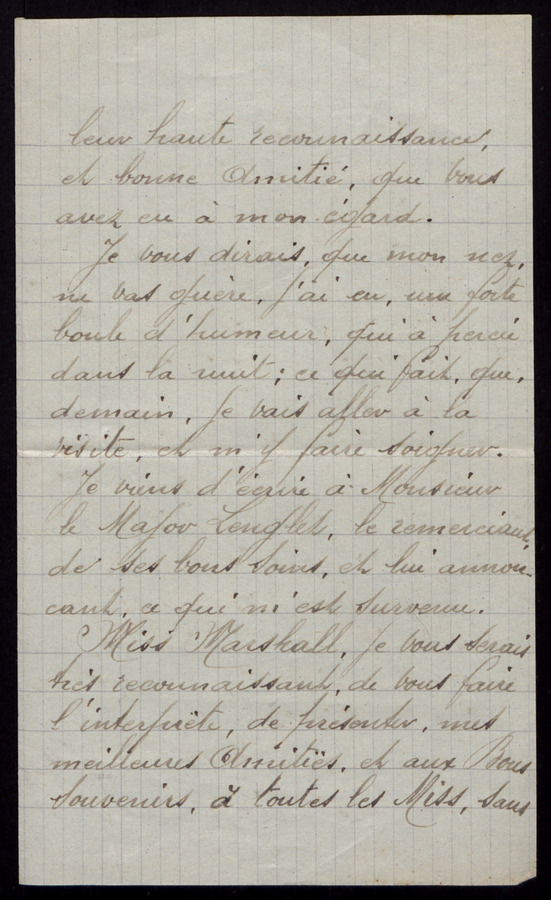 leur haute reconnaissance,
et bonne Amitié, que vous
avez eu à mon égard.
Je vous dirais, que mon nez,
ne vas guère, j'ai eu, une forte
boule d'humeur, qui à percé
dans la nuit; ce qui fait, que,
demain, Je vais aller à la
visite, et m'y faire soigner.
Je viens d'écrire à Monsieur
le Major Lenglet, le remerciant,
de ses bons soins, et lui annon-
cant, ce qui m'est survenu.
Miss Marshall, Je vous serais
très reconnaissant, de vous faire
l'interprète, de présenter, mes
meilleures Amitiés, et aux Bons
souvenirs, à toutes les Miss, sans